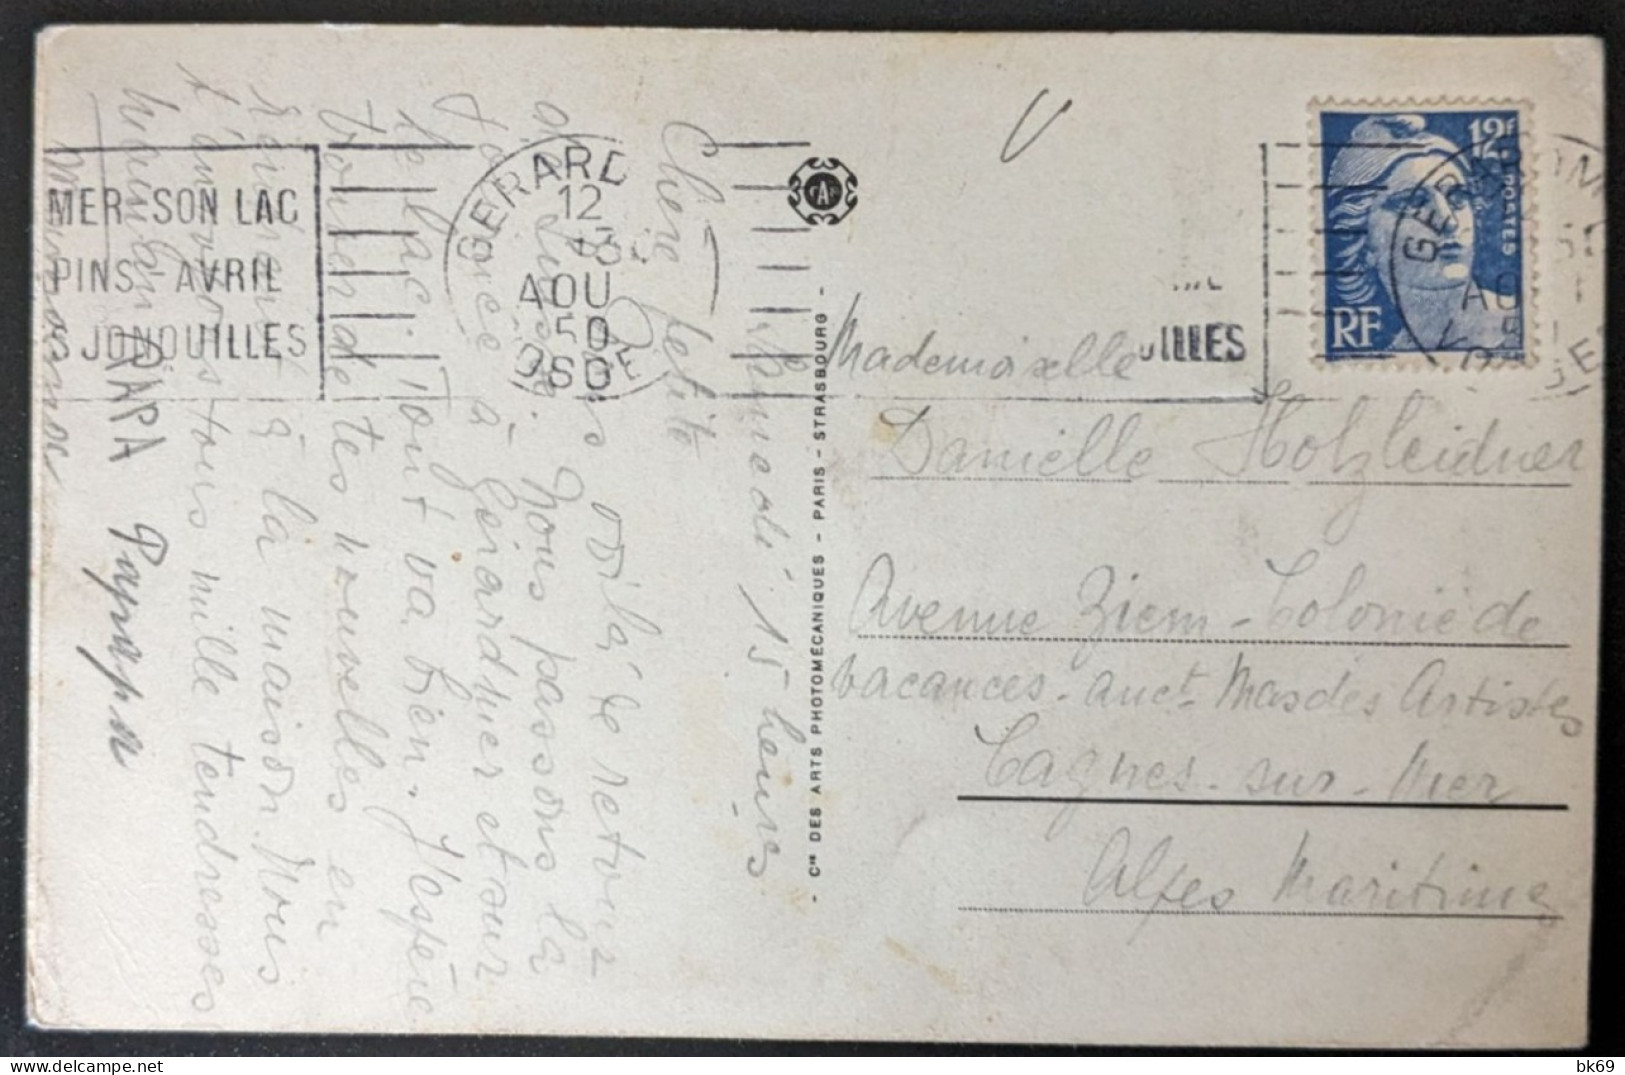 Chère petite
Odile de retour
Nous passons la
à Gérardmer et sur
le lac. Tout va bien. J'espère
trouver de tes nouvelles en
rentrant à la maison. Nous
t'envoyons tous mille tendresses
PAPA Papapa
15 heures
GERARD
12
AOU
50
OSGES
MER SON LAC
PINS AVRIL
S JONQUILLES
- Cie DES ARTS PHOTOMÉCANIQUES - PARIS - STRASBOURG -
CAP
12F
POSTES
RF
GERARDM
AO
UILLES
Mademoiselle
Danielle Holzleidner
Avenue Ziem - Colonie de
vacances - anct Mas des Artistes
Cagnes-sur-Mer
Alpes Maritimes
bk69